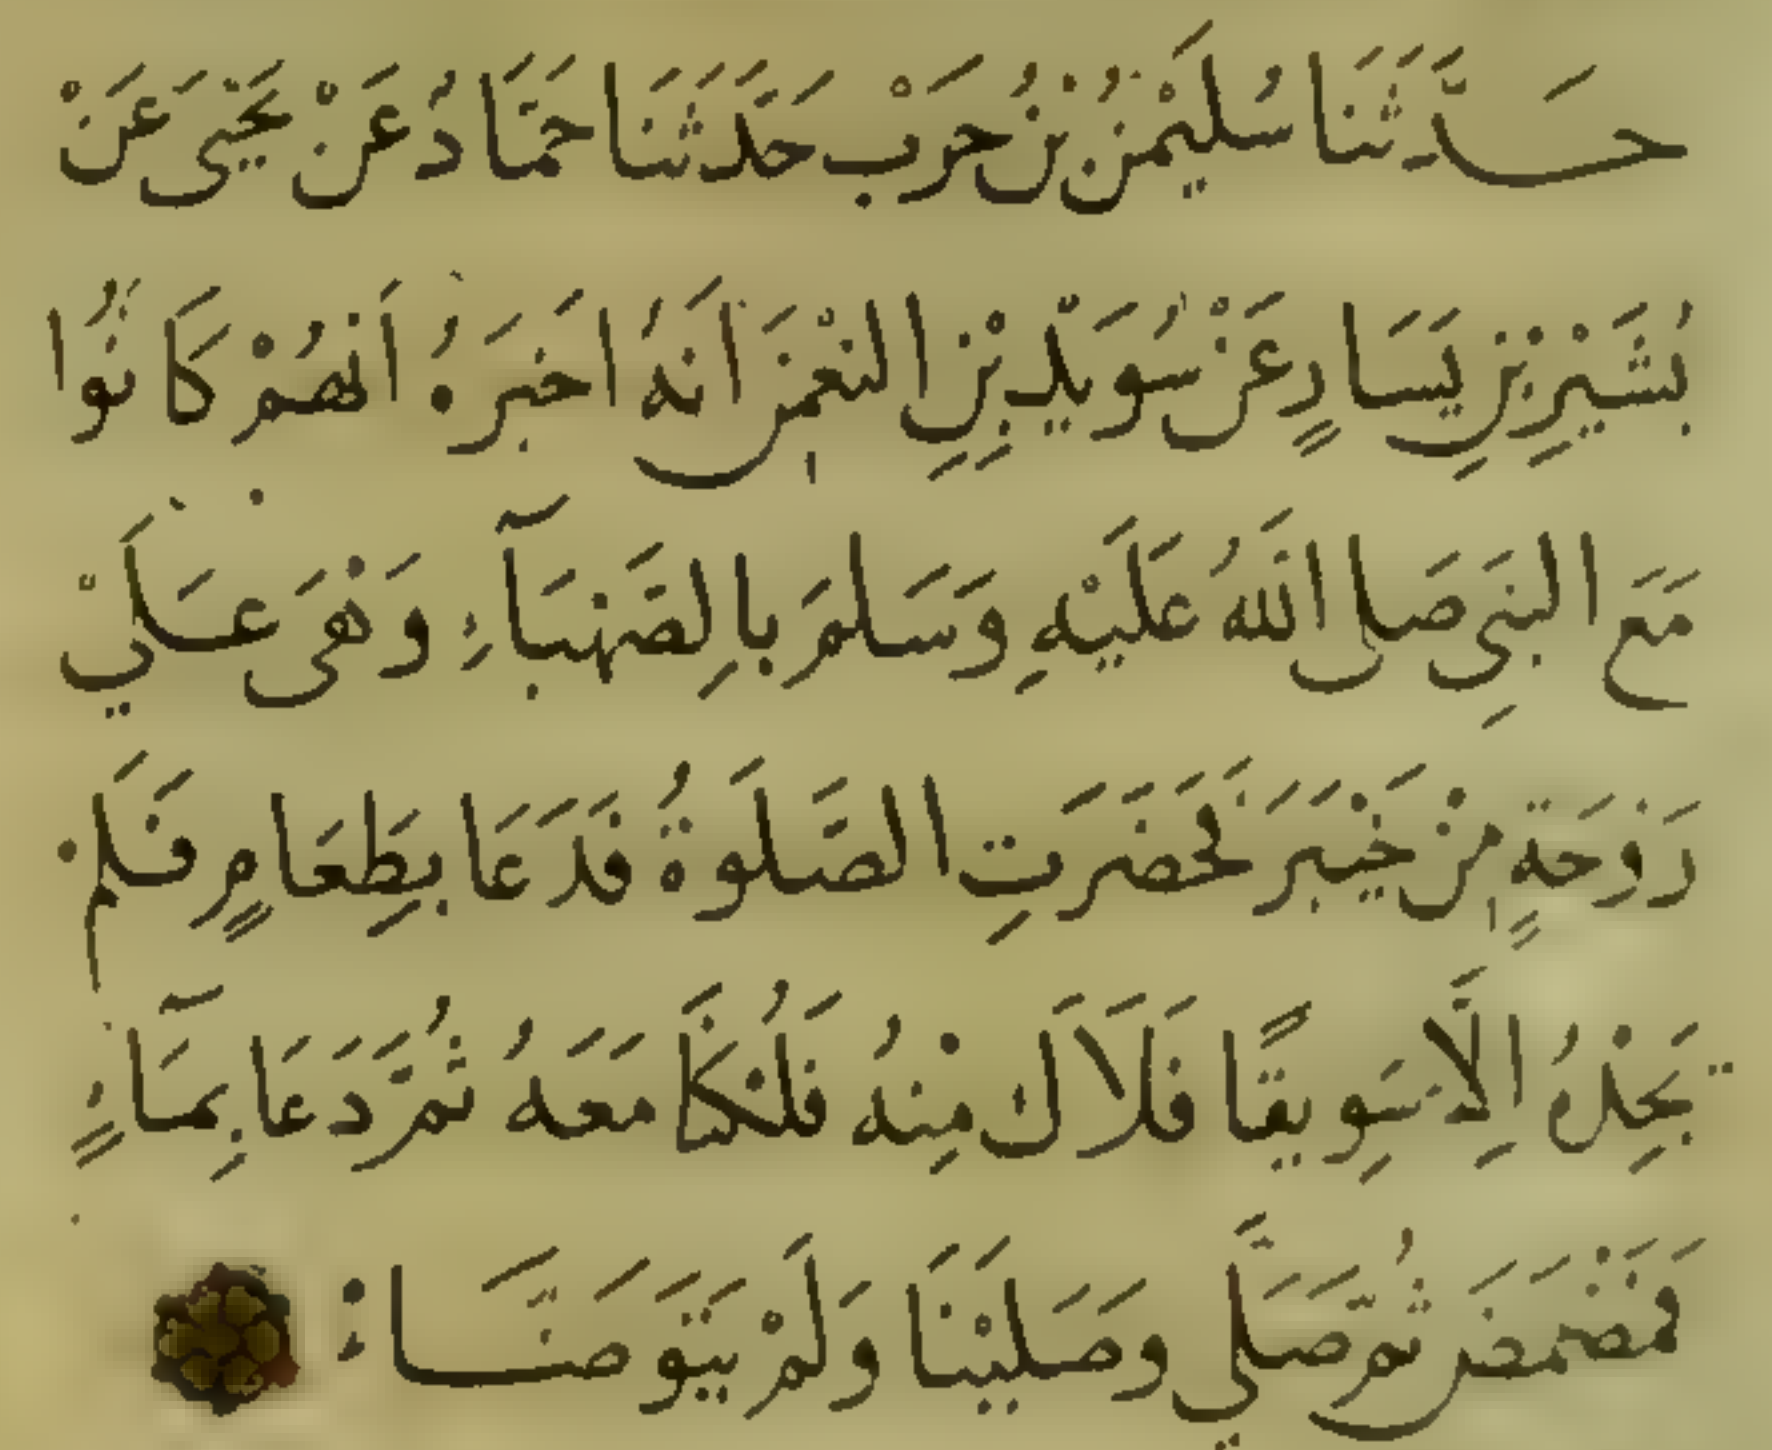 حَدَّثَنَا سُلَيْمٰنُ بْنُ حَرْبٍ حَدَّثَنَا حَمَّادٌ عَنْ يَحْيَى عَنْ
بُشَيْرِ بْنِ يَسَارٍ عَنْ سُوَيْدِ بْنِ النُّعْمٰنِ اَنَّهُ اَخْبَرَهُ اَنَّهُمْ كَانُوا
مَعَ النَّبِيِّ صَلَّى اللَّهُ عَلَيْهِ وَسَلَّمَ بِالصَّهْبَآءِ وَهْىَ عَلَى
رَوْحَةٍ مِنْ خَيْبَرَ فَحَضَرَتِ الصَّلَوةُ فَدَعَا بِطَعَامٍ فَلَمْ
يَجِدْهُ اِلَّا سَوِيقًا فَلَاكَ مِنْهُ فَلُكْنَا مَعَهُ ثُمَّ دَعَا بِمَآءٍ
فَمَضْمَضَ ثُمَّ صَلَّى وَصَلَّيْنَا وَلَمْ يَتَوَضَّأْ